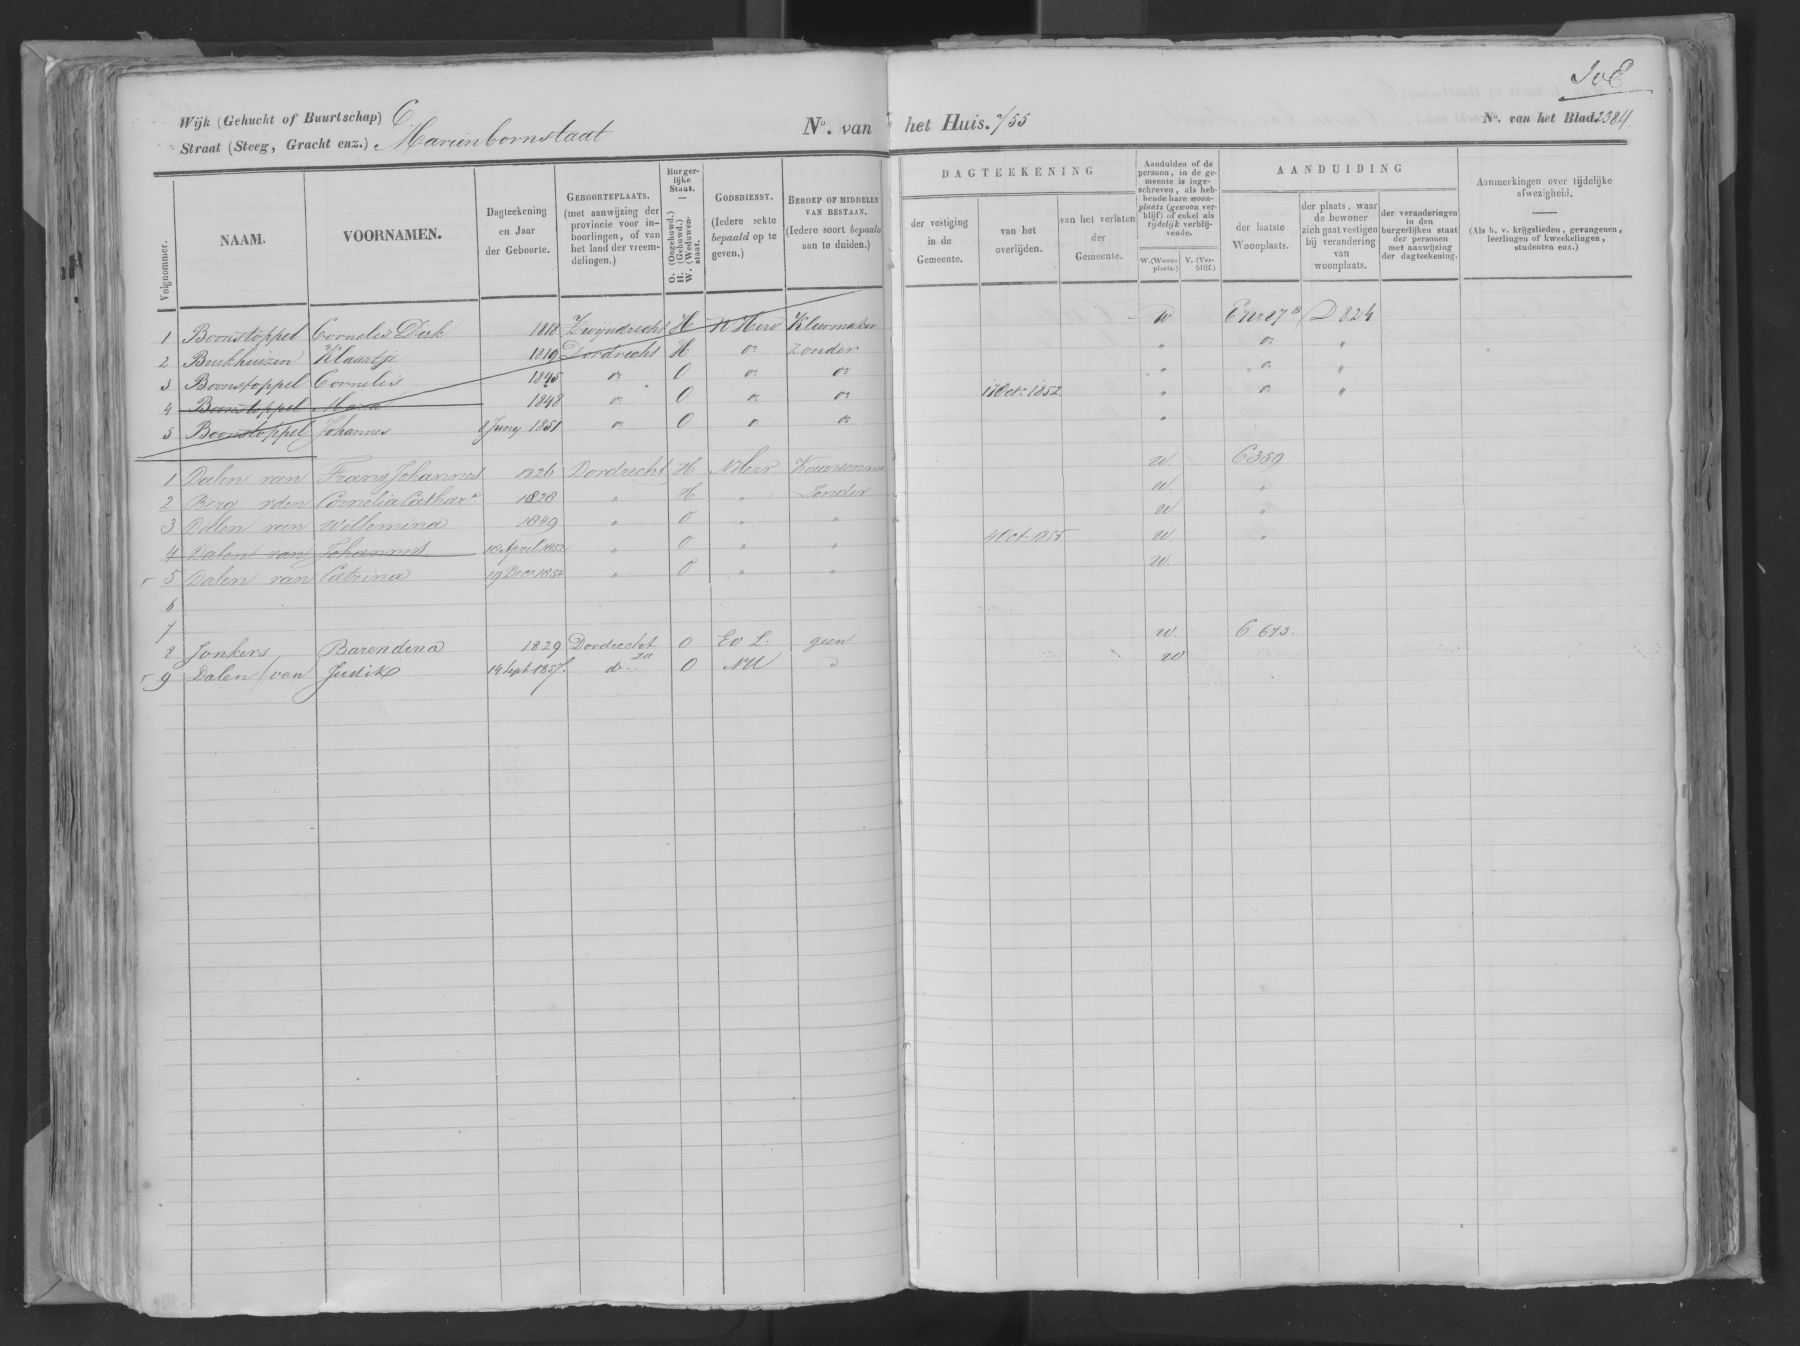 JvE
Wijk (Gehucht of Buurtschap) C
Straat (Steeg, Gracht enz.) Mariënbornstaat
No. van het Huis. 755
No. van het Blad. 2384.
Volgnommer.
NAAM.
VOORNAMEN.
Dagteekening en Jaar der Geboorte.
GEBOORTEPLAATS. (met aanwijzing der provincie voor inboorlingen, of van het land der vreemdelingen.)
Burgerlijke Staat. O. (Ongehuwd.) H. (Gehuwd.) W. (Weduwenstaat.
GODSDIENST. (Iedere sekte bepaald op te geven.)
BEROEP OF MIDDELEN VAN BESTAAN. (Iedere soort bepaald aan te duiden.)
DAGTEEKENING
der vestiging in de Gemeente.
van het overlijden.
van het verlaten der Gemeente.
Aanduiden of de persoon, in de gemeente is ingeschreven, als hebbende hare woonplaats (gewoon verblijf) of enkel als tijdelijk verblijvende.
W. (Woonplaats.) V. (Verblijf.)
AANDUIDING
der laatste Woonplaats.
der plaats, waar de bewoner zich gaat vestigen bij verandering van woonplaats.
der veranderingen in den burgerlijken staat der personen met aanwijzing der dagteekening.
Aanmerkingen over tijdelijke afwezigheid.
(Als b. v. krijgslieden, gevangenen, leerlingen of kweekelingen, studenten enz.)
1 Boonstoppel Cornelis Dirk 1818 Zwijndrecht H N Herv Kleermaker W D 824
2 Buekhuizen Klaartje 1819 Dordrecht H do Zonder " do "
3 Boonstoppel Cornelis 1845 do O do do " do "
4 Boonstoppel Maria 1848 do O do do 17 Oct. 1852 " do "
5 Boonstoppel Johannes 8 Juny 1851 do O do do "
1 Dalen van Frans Johannes 1826 Dordrecht H N Herv W. C 359
2 Berg vden Cornelia Cathar. 1828 " H " Zonder W. "
3 Dalen van Willemina 1849 " O " " W "
4 Dalen van Johannes 18 April 1852 " O " " 4 Oct. 1855 W. "
5 Dalen van Catrina 19 Dec 1854 " O " " W.
6
7
8 Jonkers Barendina 1829 Dordrecht O Ev L. geen W. C 673.
9 Dalen (van Judik 14 Sept 1857. do ZH O NH " W